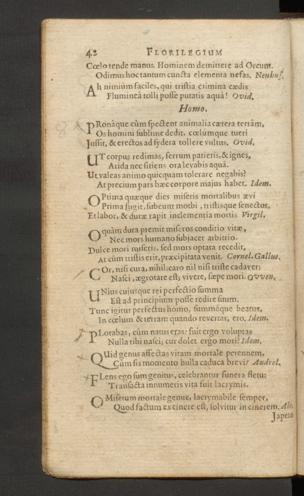 42 FLORILEGIUM
Cœlo tende manus. Hominem demittere ad Orcum.
Odimus hoc tantum cuncta elementa nefas. Neuhus.
Ah nimium faciles, qui tristia crimina cædis
Flumineâ tolli posse putatis aquâ! Ovid.
Homo.
PRonáque cùm spectent animalia cætera terrâm,
Os homini sublime dedit, cœlumque tueri
Jussit, & erectos ad sydera tollere vultus. Ovid.
UT corpus redimas, ferrum patieris, & ignes,
Arida nec sitiens ora levabis aquâ.
Ut valeas animo quicquam tolerare negabis?
At precium pars hæc corpore majus habet. Idem.
OPtima quæque dies miseris mortalibus ævi
Prima fugit, subeunt morbi, tristisque senectus,
Et labor, & duræ rapit inclementia mortis Virgil.
O quàm dura premit miseros conditio vitæ,
Nec mors humano subjacet arbitrio.
Dulce mori miseris, sed mors optata recedit,
At cùm tristis erit, præcipitata venit. Cornel. Gallus.
COr, nisi cura, nihil: caro nil nisi triste cadaver:
Nasci, ægrotare est; vivere, sæpe mori. Owen.
UNius cujusque rei perfectio summa
Est ad principium posse redire suum.
Tunc igitur perfectus homo, summéque beatus,
In cœlum & terram quando revertat, ero, Idem.
PLorabas, cùm natus eras: fuit ergo voluptas
Nulla tibi nasci; cur dolet ergo mori? Idem.
QUid genus affectas vitam mortale perennem,
Cùm sis momento bulla caduca brevi? Audoel.
FLens ego sum genitus, celebrantur funera fletu:
Transacta innumeris vita fuit lacrymis.
O Miserum mortale genus, lacrymabile semper,
Quod factum ex cinere est, solvitur in cinerem.
Japeto